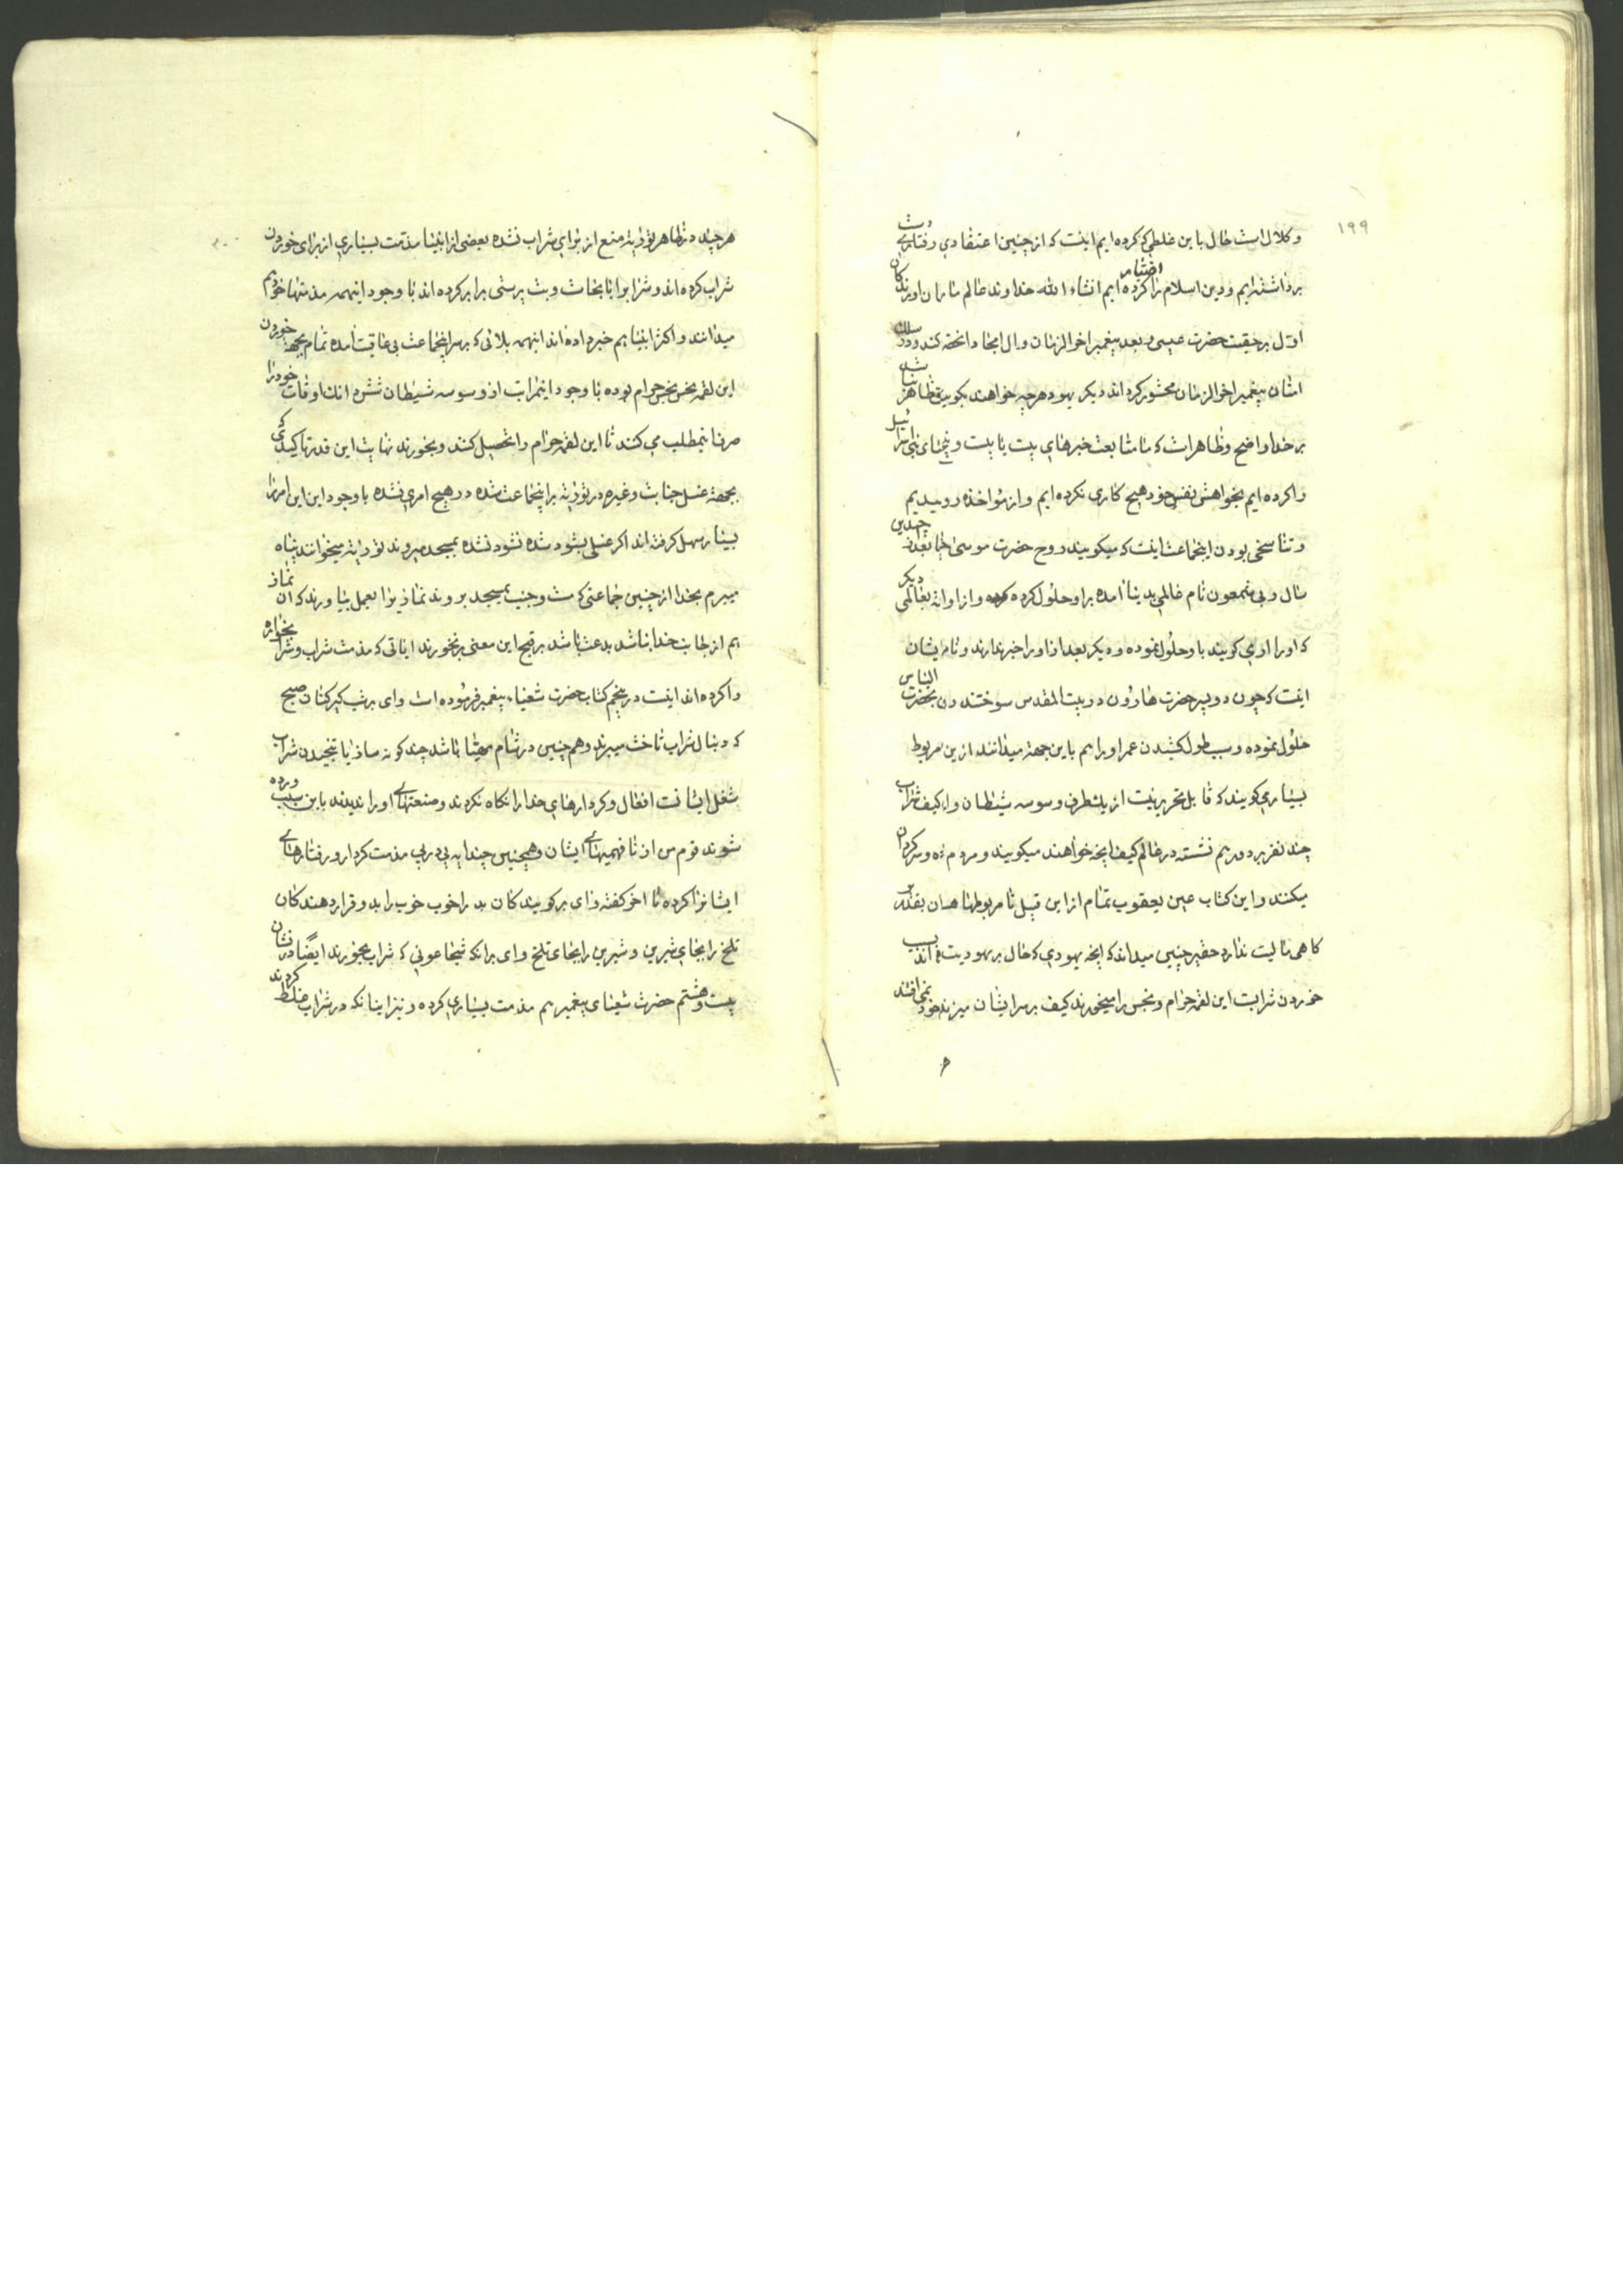 ۱۹۹
وکلال است حال باین غلطی که کرده ایم اینست که از چنین اعتقادی و رفتاری دست
برداشته ایم و دین اسلام را اختیار کرده ایم انشاء الله خداوند عالم ما را از
اول بر حقیقت حضرت عیسی و بعد پیغمبر اخر الزمان و ال امجاد انحضه کند و در سلك
امتان پیغمبر اخر الزمان محشور کرداند دیکر یهود هر چه خواهند بکویند
بر خدا واضح و ظاهر است که ما متابعت خبرهای بیست یا بیست و پنج نبی
را کرده ایم بخواهش نفس خود هیچ کاری نکرده ایم و از مؤاخذه
و تناسخی بودن اینجماعت اینست که میکویند روح حضرت موسی بعد از چندین
سال و بی شمعون نام عالمی بدنیا آمده بر او حلول کرده و از او بعالمی دیکر
که او را اری کویند باو حلول نموده و دیکر بعد از او را خبر ندارند
اینست که چون دو پسر حضرت هارون در بیت المقدس سوختند
حلول نموده و سبب طول کشیدن عمر او را هم باین جهته میدانند ازین مربوط
بسیاری کویند که قابل تحریر نیست از یکطرف وسوسه شیطان و از کیف شراب
چند نفر بر دور هم نشسته در عالم کیف انچه خواهند میکویند و مردم
میکنند و این کتاب عین یعقوب تمام از این قبیل نا مربوطها
کاهی مالیت ندارد حقیر چنین میداند که انچه یهودی که حال بر یهودیت
خوردن شرابست این لقمه حرام و نجس را میخورند کیف بر سر ایشان میزند
هر چند در ظاهر توراته منع از برای شراب نشده بعضی از انبیا مذمت بسیاری از برای خوردن
شراب کرده اند و شراب را با نجاست و بت پرستی برابر کرده اند با وجود اینهمه مذمتها
میدانند و اکثر انبیا هم خبر داده اند اینهمه بلائی که بر سر اینجماعت بی عاقبت آمده تمام بجهة خوردن
این لقمه نجس حرام بوده با وجود اینمراتب از وسوسه شیطان اوقات خود را
صرف اینمطلب می کنند تا این لقمه حرام را تحصیل کنند و بخورند نهایت این قدر تاکیدی که
بجهته غسل جنابت و غیره در توراته بر اینجماعت شده در هیچ امری نشده با وجود این این امر را
بسیار سهل کرفته اند اکر غسلی بشود شده نشود نشده بمسجد میروند توراته میخوانند پناه
میبرم بخدا از چنین جماعتی که مست و جنب بمسجد بروند نمازی را بعمل بیاورند که آن نماز
هم از جانب خدا نباشد بدعت باشد بر قبح این معنی بر نخورند ایاتی که مذمت شراب و شرابخواره
را کرده اند اینست در پنجم کتاب حضرت شعیاء پیغمبر فرموده است وای بر شب کیر کنان صبح
که دنبال شراب تاخت میبرند و هم چنین در شام مهیا باشد چند کونه ساز شراب
شغل ایشانست افعال و کردارهای خدا را نکاه نکردند و صنعتهای او را ندیدند باین سبب برده
شوند قوم من از نا فهمیهای ایشان و همچنین چند ایه پی در پی مذمت کردار و رفتارهای
ایشانرا کرده تا اخر کفته وای بر کویندکان بد را خوب خوب را بد و قرار دهندکان
تلخ را بجای شیرین و شیرین را بجای تلخ وای بر انکه شجاعونی که شراب میخورند ایضا در
بیست و هشتم حضرت شعیای پیغمبر هم مذمت بسیاری کرده و نیز اینانکه در شراب غلط کردند